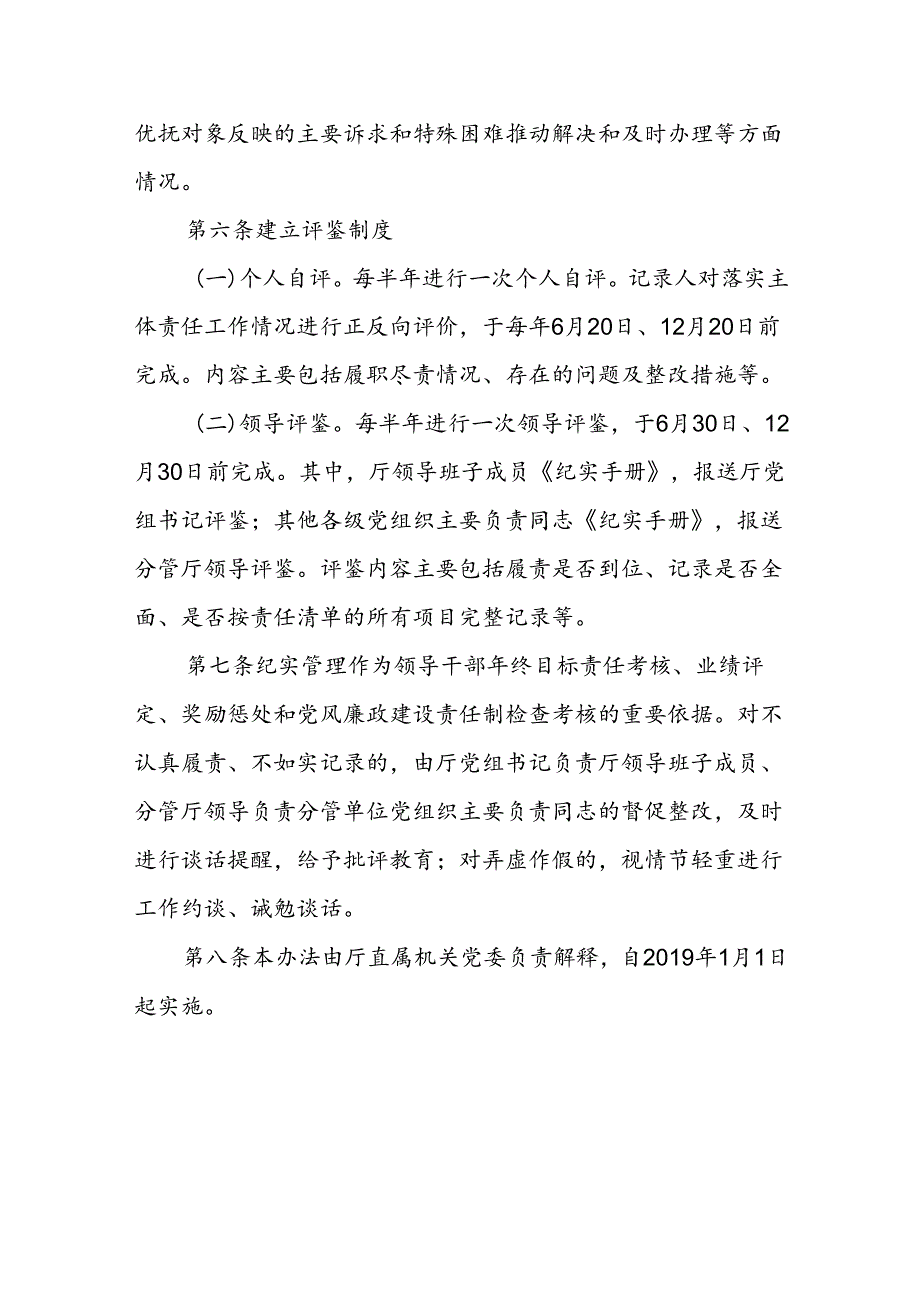 优抚对象反映的主要诉求和特殊困难推动解决和及时办理等方面
情况。
第六条建立评鉴制度
(一)个人自评。每半年进行一次个人自评。记录人对落实主
体责任工作情况进行正反向评价，于每年6月20日、12月20日前
完成。内容主要包括履职尽责情况、存在的问题及整改措施等。
(二)领导评鉴。每半年进行一次领导评鉴，于6月30日、12
月30日前完成。其中，厅领导班子成员《纪实手册》，报送厅党
组书记评鉴；其他各级党组织主要负责同志《纪实手册》，报送
分管厅领导评鉴。评鉴内容主要包括履责是否到位、记录是否全
面、是否按责任清单的所有项目完整记录等。
第七条纪实管理作为领导干部年终目标责任考核、业绩评
定、奖励惩处和党风廉政建设责任制检查考核的重要依据。对不
认真履责、不如实记录的，由厅党组书记负责厅领导班子成员、
分管厅领导负责分管单位党组织主要负责同志的督促整改，及时
进行谈话提醒，给予批评教育；对弄虚作假的，视情节轻重进行
工作约谈、诫勉谈话。
第八条本办法由厅直属机关党委负责解释，自2019年1月1日
起实施。